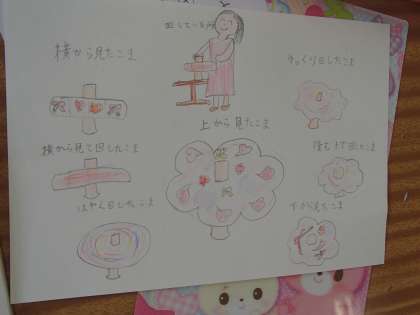 回している所
横から見たこま
ゆっくり回したこま
上から見たこま
横から見て回したこま
はやく回したこま
下から見たこま